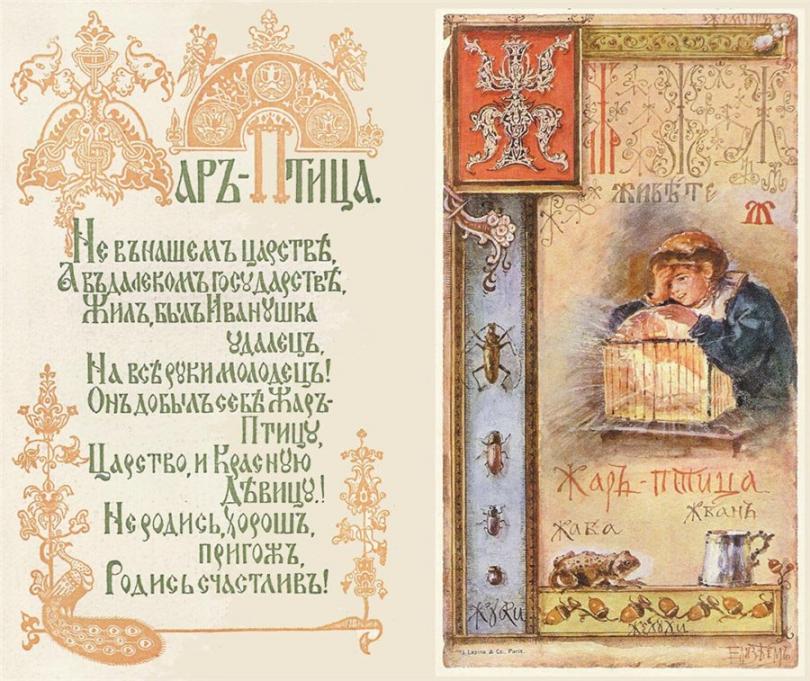 Жаръ-Птица.
Не въ нашемъ царствѣ,
А въ далекомъ государствѣ,
Жилъ, былъ Иванушка
удалецъ,
На всѣ руки молодецъ!
Онъ добылъ себѣ Жаръ-
Птицу,
Царство, и Красную
Дѣвицу.!
Не родись, хорошъ,
пригожъ,
Родись счастливъ!
жемчугъ
Ж
живѣте
Ж
Жаръ-птица
жбанъ
жаба
жуки
жолуди
Lapina & Co., Paris.